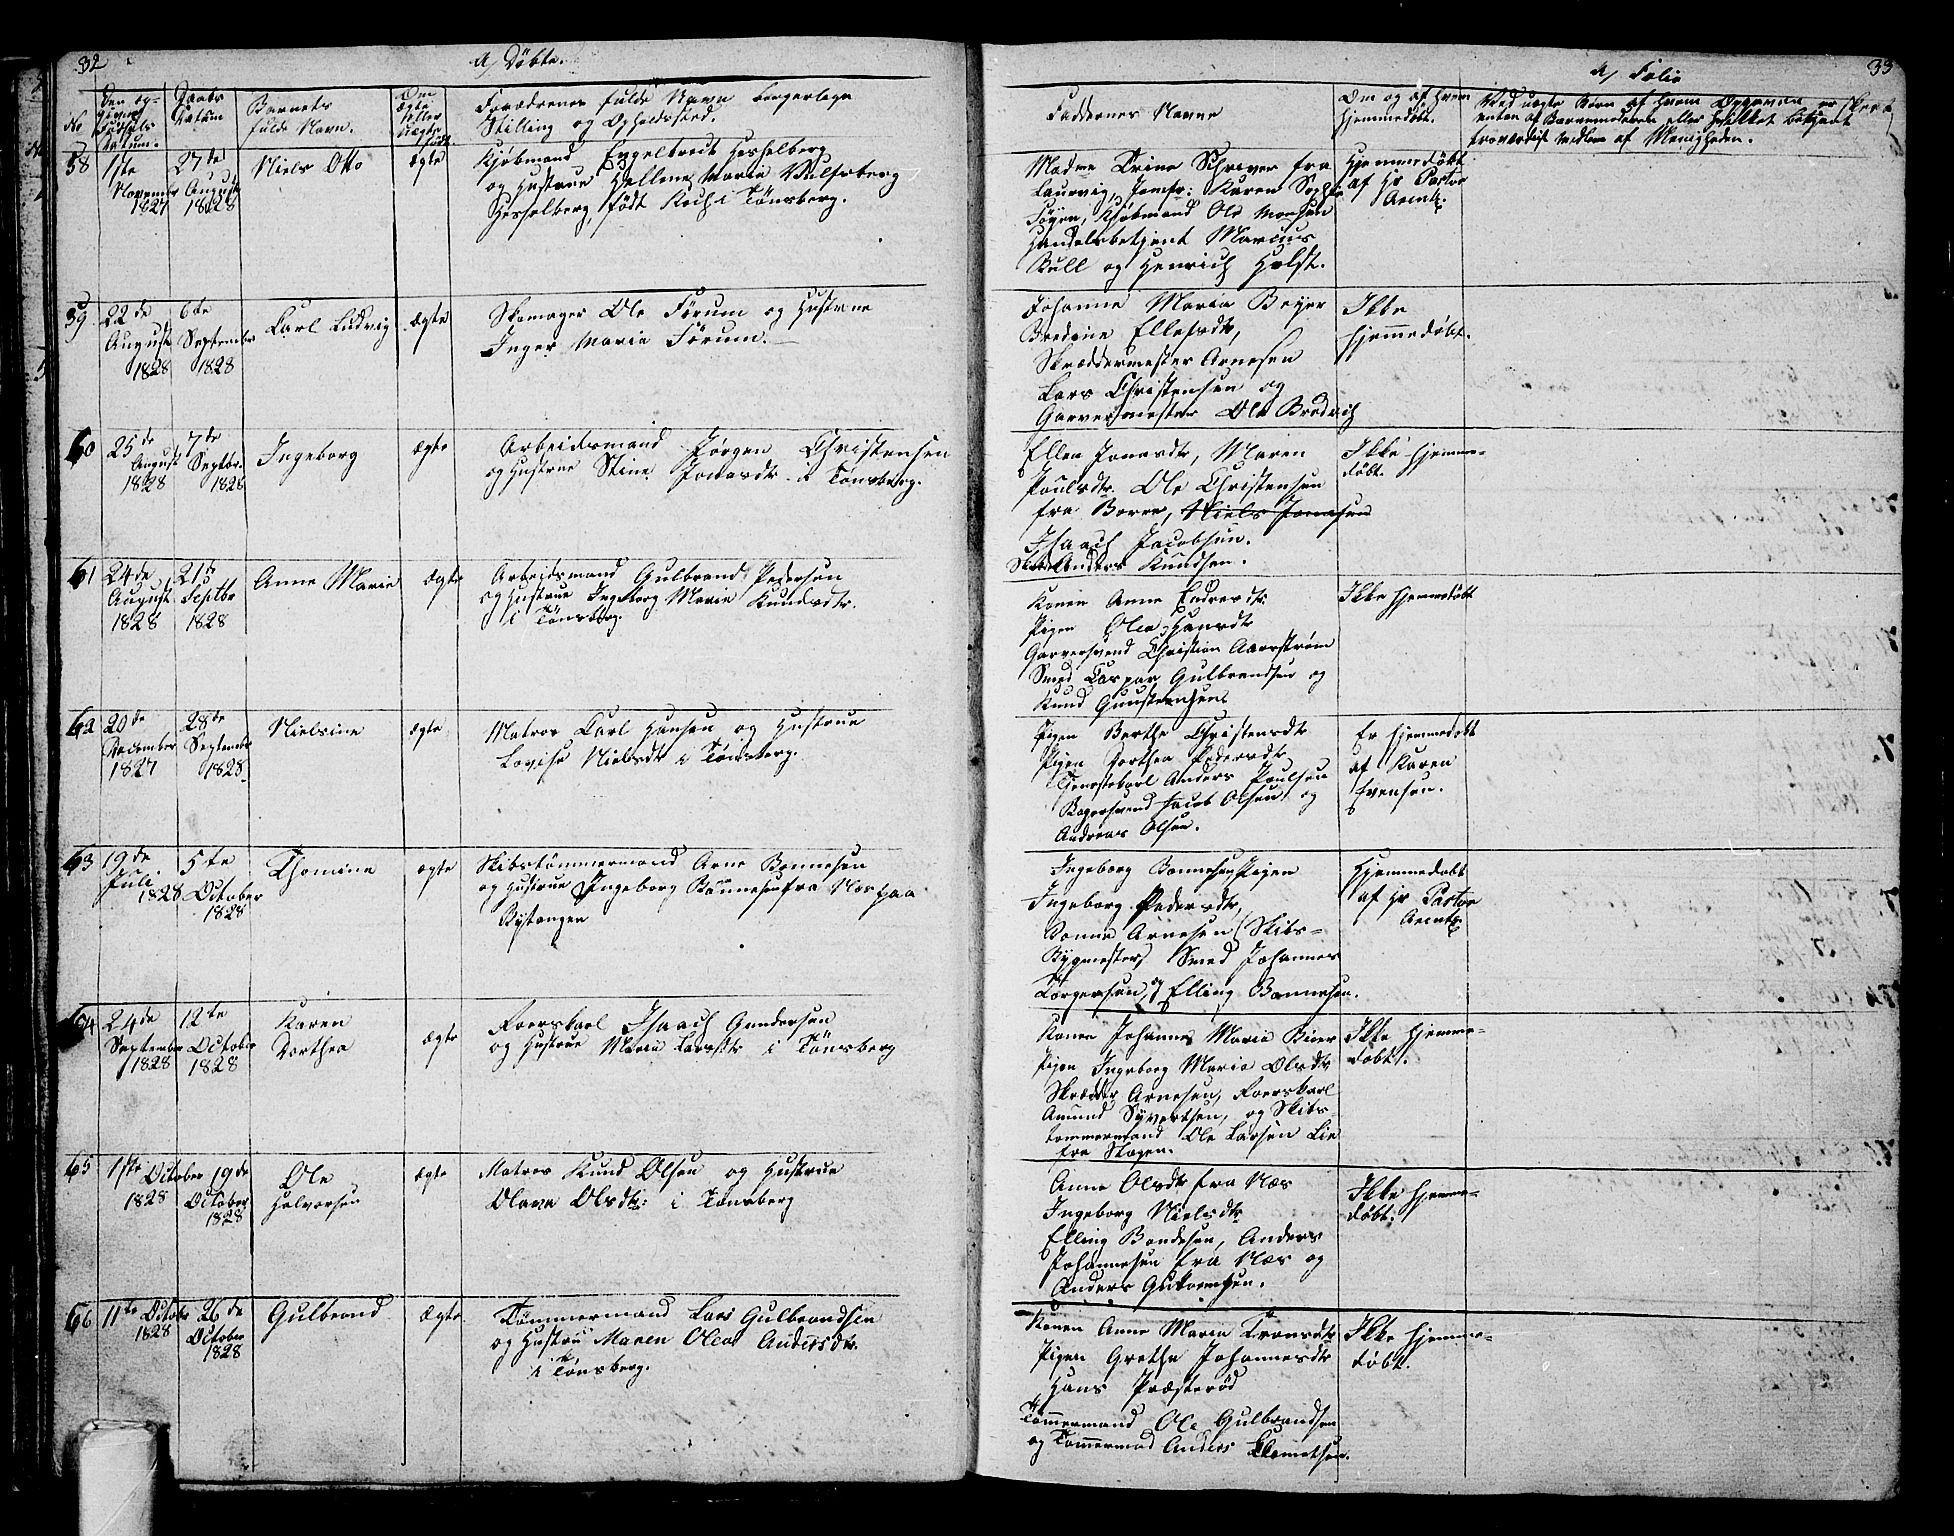 32
A, Døbte.
No
Den opgivne Fødsels Datum.
Daabs Datum
Barnets fulde Navn.
Om ægte eller uægte født
Forældrenes fulde Navn borgerlige
Stilling og Opholdssted.
58
1ste
November
1827
27de
August
1828
Niels Otto
ægte
Kjøbmand Engelbredt Hesselberg
og Hustrue Hellene Maria Wulfsberg
Hesselberg, født Koch i Tønsberg.
59
22de
August
1828
6te
September
1828
Carl Ludvig
ægte
Skomager Ole Förum og Hustrue
Inger Maria Förum.
60
25de
August
1828
7de
Septbr.
1828
Ingeborg
ægte
Arbeidsmand Jørgen Christensen
og Hustrue Stine Jonasdtr. i Tønsberg.
61
24de
August
1828
21de
Septbr
1828
Anne Marie
Ægte
Arbeidsmand Gulbrand Pedersen
og Hustrue Ingeborg Marie Knudsdtr.
i Tønsberg.
62
20de
December
1827
28de
September
1828
Nielsine
ægte
Matros Carl Hansen og Hustrue
Lovise Nielsdtr i Tønsberg.
63
19de
Juli
1828
5te
October
1828
Thomine
ægte
Skibstømmermand Arne Bonnesen
og Hustrue Ingeborg Bonnesen fra Nes paa
Bystangen
64
24de
September
1828
12te
October
1828
Karen
Dorthea
ægte
Roerskarl Isaach Gundersen
og Hustrue Maria Larsdtr i Tønsberg
65
1ste October
1828
19de
October
1828
Ole
Halvorsen
ægte
Matros Knud Olsen og Hustrue
Olava Olsdtr: i Tønsberg
66
11te October
1828
26de
October
1828
Gulbrand
Ægte
Tømmermand Lars Gulbrandsen
og Hustru Maren Olea Andersdtr.
i Tønsberg.
A, Folio
33
Faddernes Navne
Om og af hvem
hjemmedøbt.
Ved uægte Børn af hvem Opgaven er skeet
enten af Barnemoderen eller hvilket bekjent
troværdigt Medlem af Menigheden.
Madme Trine Schrever fra
Laurvig, Jomfr: Karen Sophie
Föyen, Kjøbmand Ole Monsen
Handelsbetjent Marcus
Bull og Henrich Holst.
Hjemmedøbt
af Hr Pastor
Arentz.
Johanne Maria Beyer
Bredine Ellefsdtr,
Skræddermester Arnesen
Lars Christensen og
Garvermester Ole Brodrich
Ikke
hjemmedøbt.
Ellen Jonasdtr, Maren
Poulsdtr. Ole Christensen
fra Borre, Niels Jonasen
Isaach Jacobsen.
Anders Knudsen.
Ikke hjemme-
døbt.
Konen Anne Endresdtr
Pigen Olea Hansdtr
Garversvend Christian Aarstrøm
Smed Caspar Gulbrandsen og
Knud Gunstensen
Ikke hjemmedøbt
Pigen Berthe Christensdtr
Pigen Dorthea Pedersdtr
Tjenestekarl Anders Poulsen
Bagersvend Jacob Olsen og
Andreas Olsen.
Er hjemmedøbt
af Karen
Evensen.
Ingeborg Bonnesen, Pigen
Ingeborg Pedersdtr,
Bonne Arnesen (Skibs-
Bygmester) Smed Johannes
Torgersen, og Elling Bonnesen.
Hjemmedøbt
af Hr Pastor
Arentz
Konen Johanne Maria Buer
Pigen Ingeborg Maria Olsdtr
Skrædr Arnesen, Roerskarl
Amund Syvertsen, og Skibs-
tømmermand Ole Larsen Lie
fra Skogen.
Ikke hjemme-
døbt.
Anne Olsdtr fra Næs
Ingeborg Nielsdtr
Elling Bondesen, Anders
Johannesen fra Næs og
Anders Guttormsen.
Ikke hjemme-
døbt.
Konen Anne Maria Tronsdtr
Pigen Grethe Johannesdtr
Hans Præsterød
Tømmermand Ole Gulbrandsen
og Tømmermd Anders Clemetsen.
Ikke hjemme-
døbt.